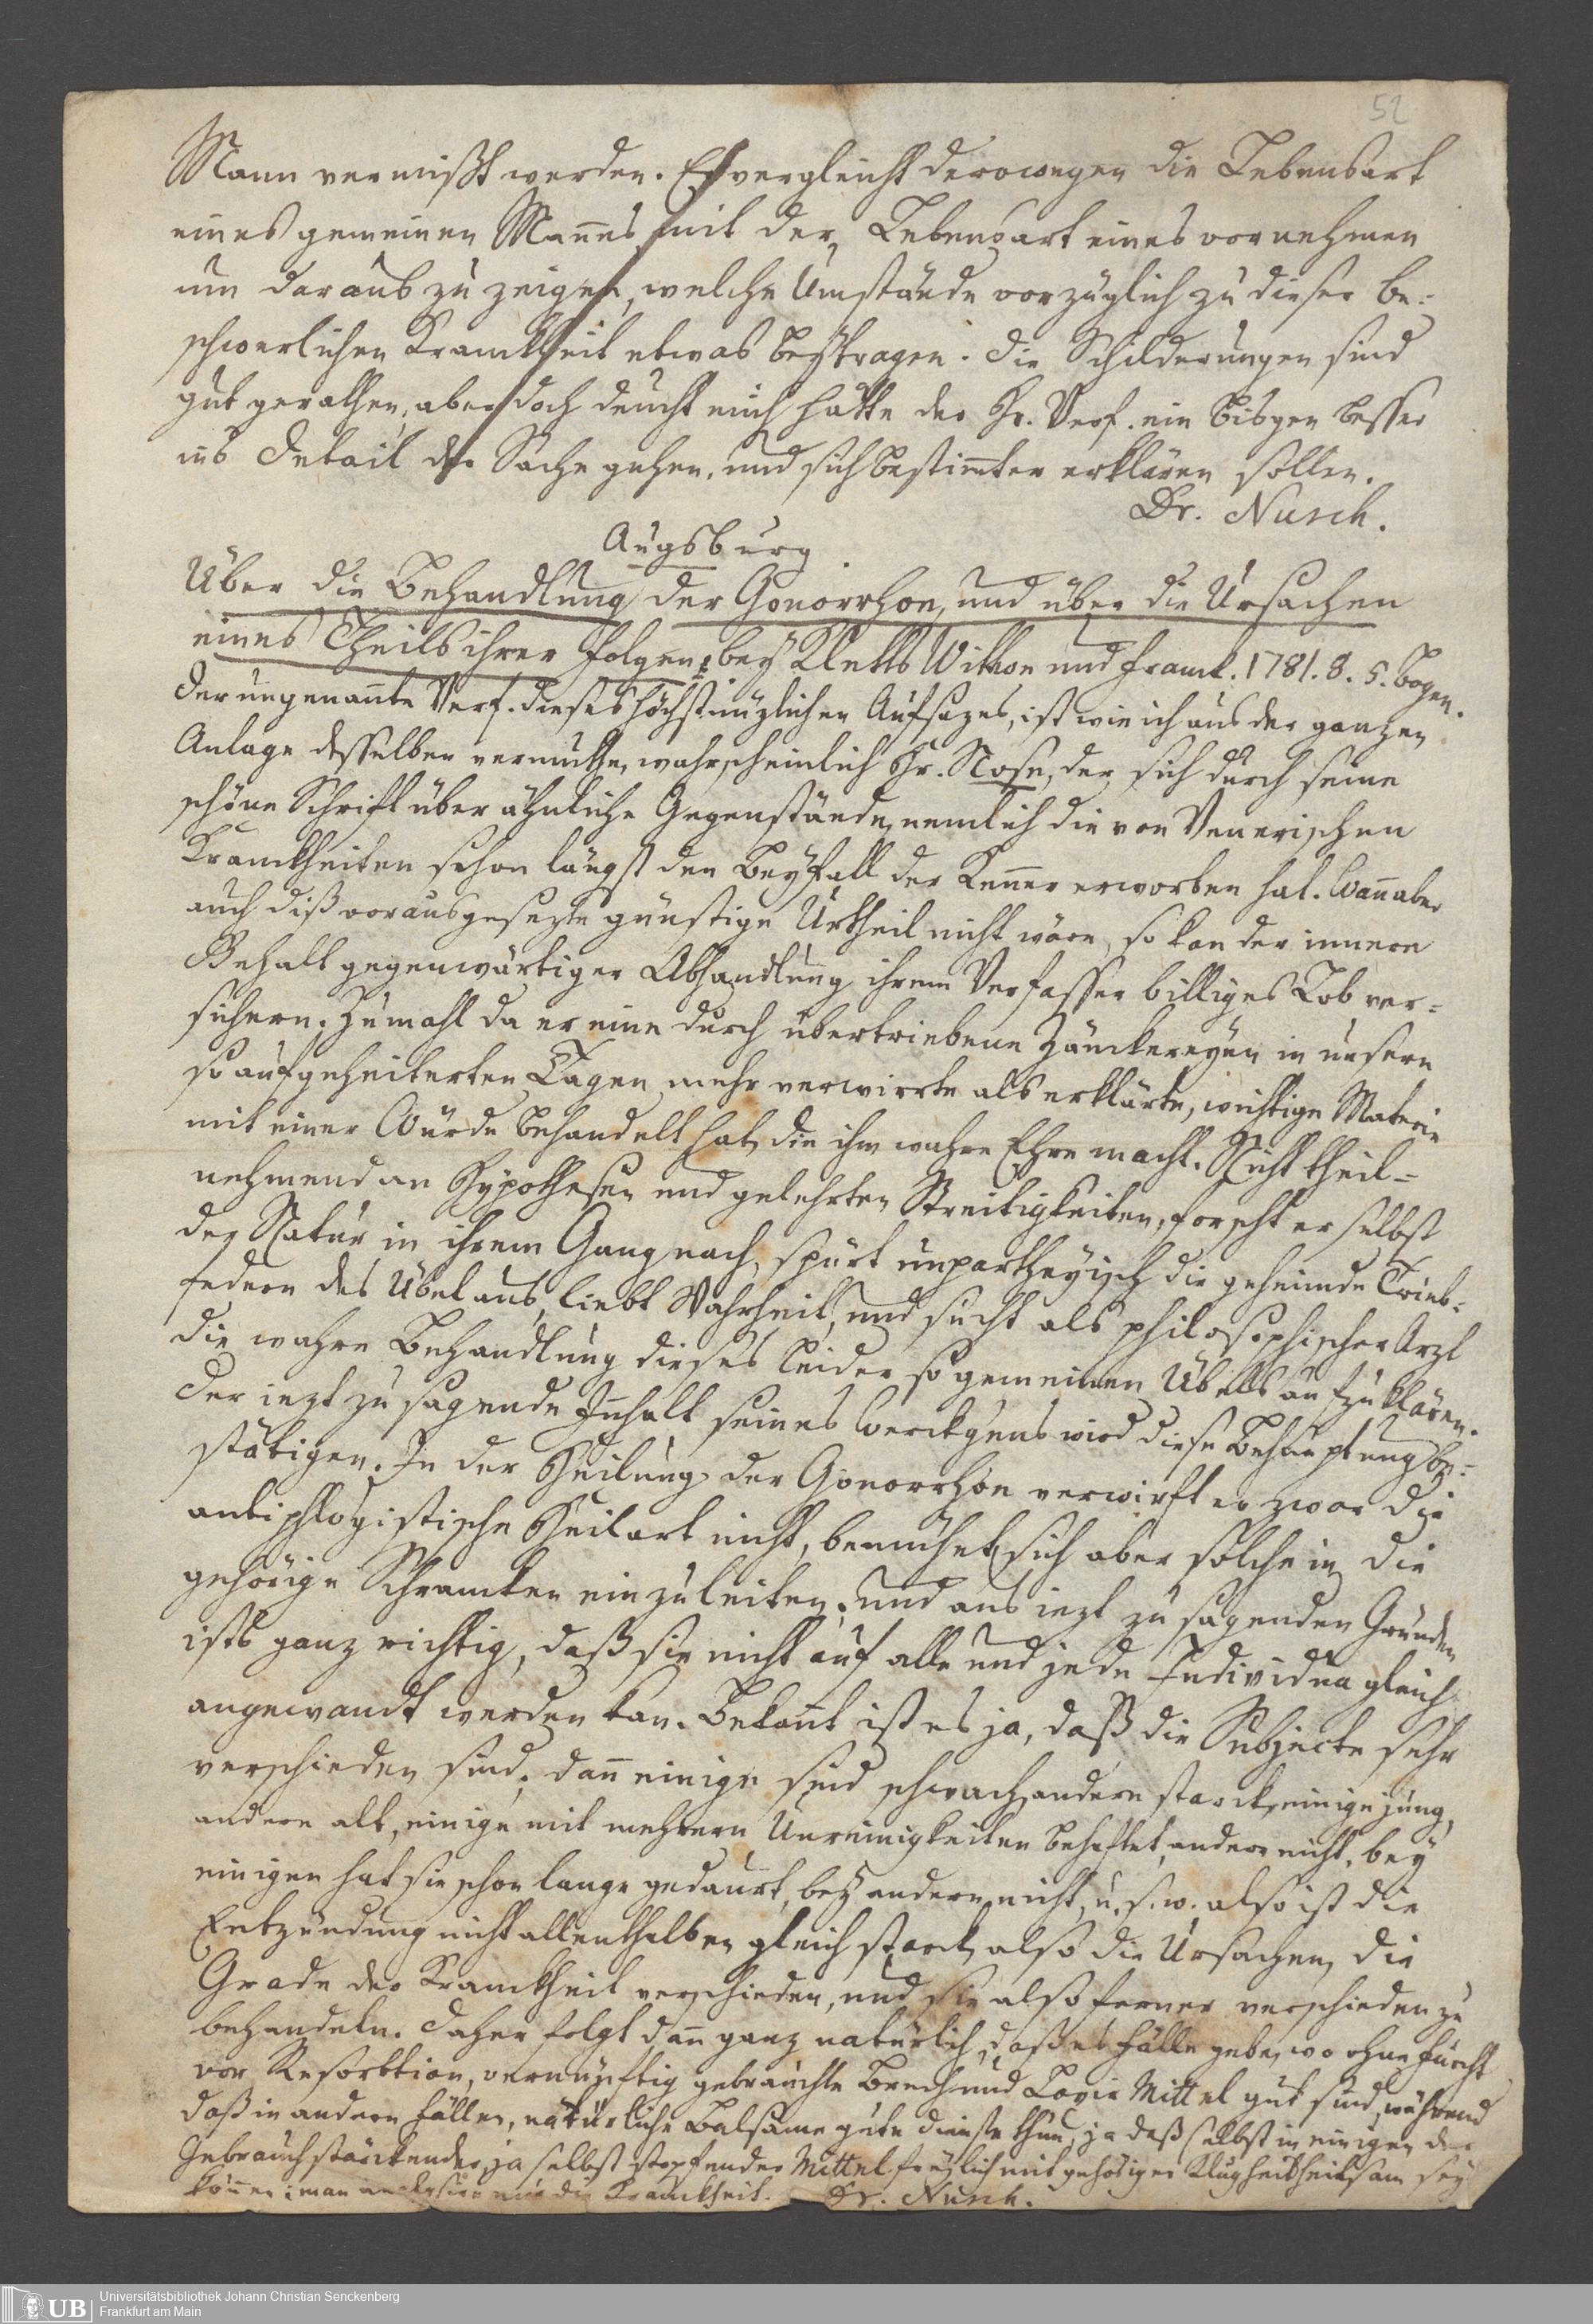 52
Mann vermißt werden. Er vergleicht derowegen die Lebensart
eines gemeinen Mannes mit der Lebensart eines vornehmen
um daraus zu zeigen, welche Umstände vorzüglich zu dieser be-
schwerlichen Kranckheit etwas beytragen. Die Schilderungen sind
gut gerathen, aber doch deucht mich hätte der Hr. Verf. ein bisgen besser
ins Detail der Sache gehen, und sich bestimter erklären sollen.
Dr. Nusch.
Augsburg
Über die Behandlung der Gonorrhoe, und über die Ursachen
eines Theils ihrer Folgen, bey Kletts Wittwe und Franck. 1781. 8. 5. Bogen.
Der ungenante Verf. dieses höchstnüzlichen Aufsazes, ist wie ich aus der ganzen
Anlage desselben vermuthe, wahrscheinlich Hr. Nose, der sich durch seine
schöne Schrift über ähnliche Gegenstände, nemlich die von Venerischen
Kranckheiten schon längst den Beyfall der Kenner erworben hat. Wann aber
auch diß vorausgesezte günstige Urtheil nicht wäre, so kan der innere
Gehalt gegenwärtiger Abhandlung ihrem Verfasser billiges Lob ver-
sichern. Zumahl da er eine durch übertriebene Zänckereyen in unsern
so aufgeheiterten Tagen mehr verwirrte als erklärte, wichtige Materie
mit einer Würde behandelt hat, die ihm wahre Ehre macht. Nicht theil-
nehmend an Hypothesen und gelehrten Streitigkeiten, forscht er selbst
der Natur in ihrem Gang nach, spürt unpartheyisch die geheimde Trieb-
federn des Übel aus, liebt Wahrheit, und sucht als philosophischer Arzt
die wahre Behandlung dieses leider so gemeinen Übels aufzuklären.
Der iezt zu sagende Inhalt seines Werckgens wird diese Behauptung be-
stätigen. In der Heilung der Gonorrhöe verwirft er zwar die
antiphlogistische Heilart nicht, bemühet sich aber solche in die
gehörige Schrancken einzuleiten. Und aus iezt zu sagenden Gründen
ists ganz richtig, daß sie nicht auf alle und jede Individua gleich
angewandt werden kan. Bekant ist es ja, daß die Subjecte sehr
verschieden sind, dann einige sind schwach, andere starck, einige jung,
andere alt, einige mit mehrern Unreinigkeiten behaftet, andere nicht, bey
einigen hat sie schon lange gedaurt, bey andern nicht, u. s. w. also ist die
Entzündung nicht allenthalben gleich starck, also die Ursachen, die
Grade der Kranckheit verschieden, und sie also ferner verschieden zu
behandeln. Daher folgt dann ganz natürlich, daß es Fälle gebe, wo ohne Furcht
vor Resorbtion, vernünftig gebrauchte Brech und Laxir Mittel gut sind, während
daß in andern Fällen, natürliche Balsame gute Dienste thun, ja daß selbst in einigen der
Gebrauch stärckender, ja selbst stopfender Mittel freylich mit gehöriger Klugheit heilsam sey
können: man nur die Kranckheit. Dr. Nusch.
UB Universitätsbibliothek Johann Christian Senckenberg
Frankfurt am Main